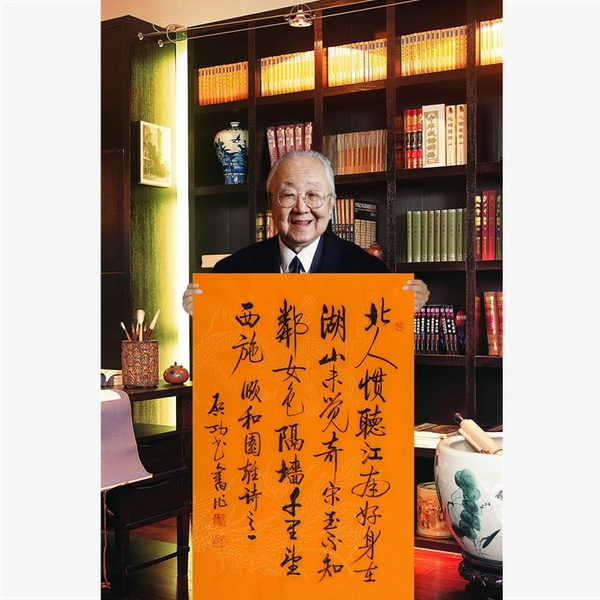 北人惯聽江南好身在
湖山未觉奇宋玉不知
鄰女色隔墙千里望
西施 颐和園雜诗之一
启功书舊作